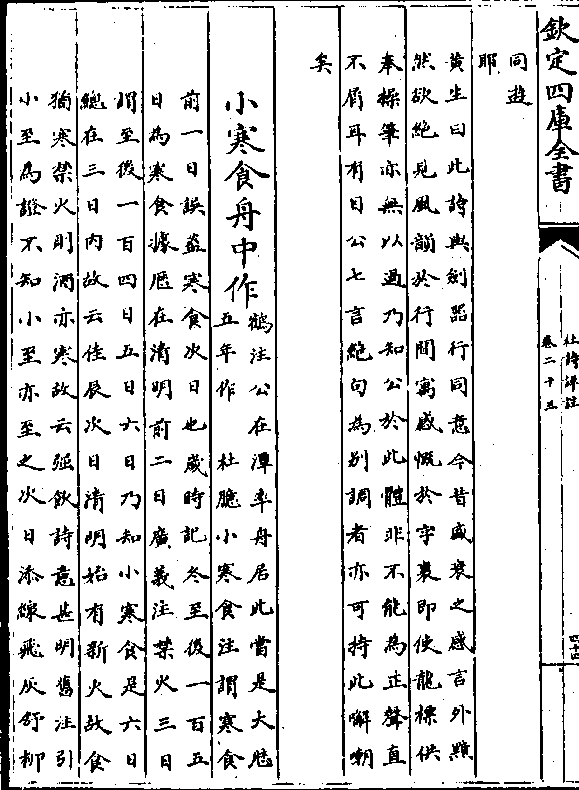 欽定四庫全書
杜詩詳註
卷二十三
同遊
耶
黃生曰此詩與劍器行同意今昔盛衰之感言外黯
然欲絕見風韻於行間寓感慨於字裏即使龍標供
奉操筆亦無以過乃知公於此體非不能為正聲直
不屑耳有目公七言絕句為別調者亦可持此解嘲
矣
小寒食舟中作
鶴注公在潭率舟居此當是大厯
五年作 杜臆小寒食注謂寒食
前一日誤蓋寒食次日也歲時記冬至後一百五
日為寒食據厯在清明前二日廣義注禁火三日
謂至後一百四日五日六日乃知小寒食是六日
總在三日內故云佳辰次日清明始有新火故食
猶寒禁火則酒亦寒故云强飲詩意甚明舊注引
小至為證不知小至亦至之次日添線飛灰舒柳